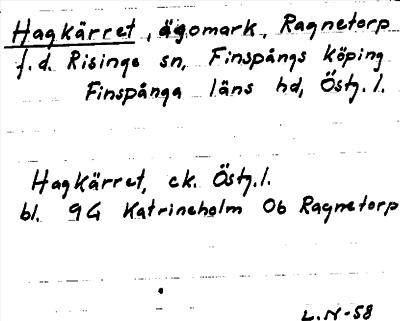 Hagkärret, ägomark, Ragnetorp
f.d. Risinge sn, Finspångs köping
Finspånga läns hd, Östg. l.
Hagkärret, ek. Östg. l.
bl. 9G Katrineholm 0b Ragnetorp
L.N-58